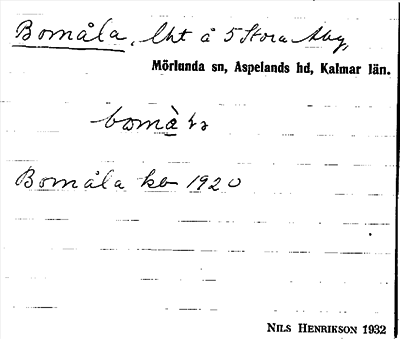 Bomåla, lht å 5 Stora Åby,
Mörlunda sn, Aspelands hd, Kalmar län.
Bomåla kb 1920
NILS HENRIKSON 1932